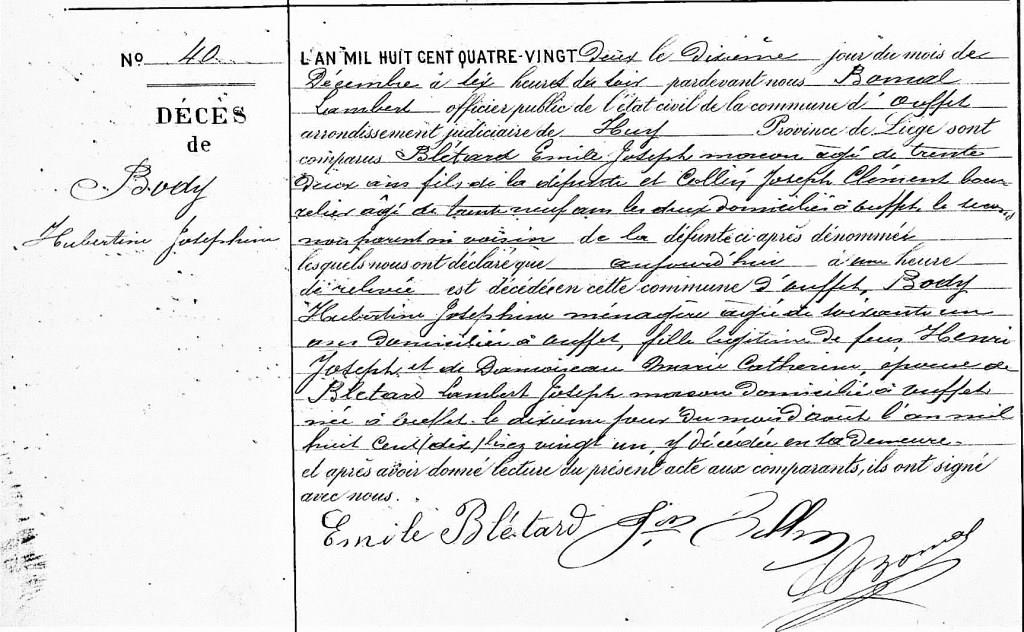 No 40
DÉCÈS
de
Body
Hubertine Josephine
L'AN MIL HUIT CENT QUATRE-VINGT Deux le Dixième jour du mois de
Décembre à six heures du soir pardevant nous Bomal
Lambert officier public de l'état civil de la commune d'Ouffet
arrondissement judiciaire de Huy Province de Liège sont
comparus Blétard Emile Joseph maçon âgé de trente
deux ans fils de la défunte et Collin Joseph Clément bour
relier âgé de trente neuf ans les deux domiciliés à Ouffet le second
non parent ni voisin de la défunte ci-après dénommée
lesquels nous ont déclaré que aujourd'hui à une heure
de relevée est décédée en cette commune d'Ouffet, Body
Hubertine Josephine ménagère âgée de soixante un
ans domiciliée à Ouffet, fille légitime de feus Henri
Joseph et de Damoiseau Marie Catherine, épouse de
Blétard Lambert Joseph maçon domicilié à Ouffet
née à Ouffet le dixième jour du mois d'août l'an mil
huit cent (dix) vingt un, y décédée en sa demeure.
et après avoir donné lecture du présent acte aux comparants, ils ont signé
avec nous.
Emile Blétard Jph Collin
Bomal